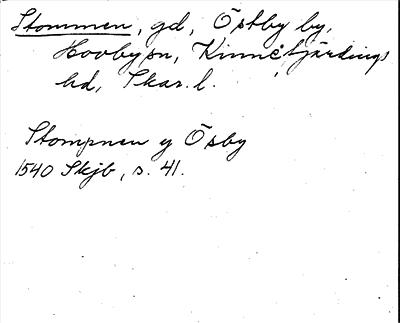 Stommen, gd, Östby by,
Hovby sn, Kinnefjärdings
hd, Skar. l.
Stompnen y Ösby
1540 Skjb, s. 41.